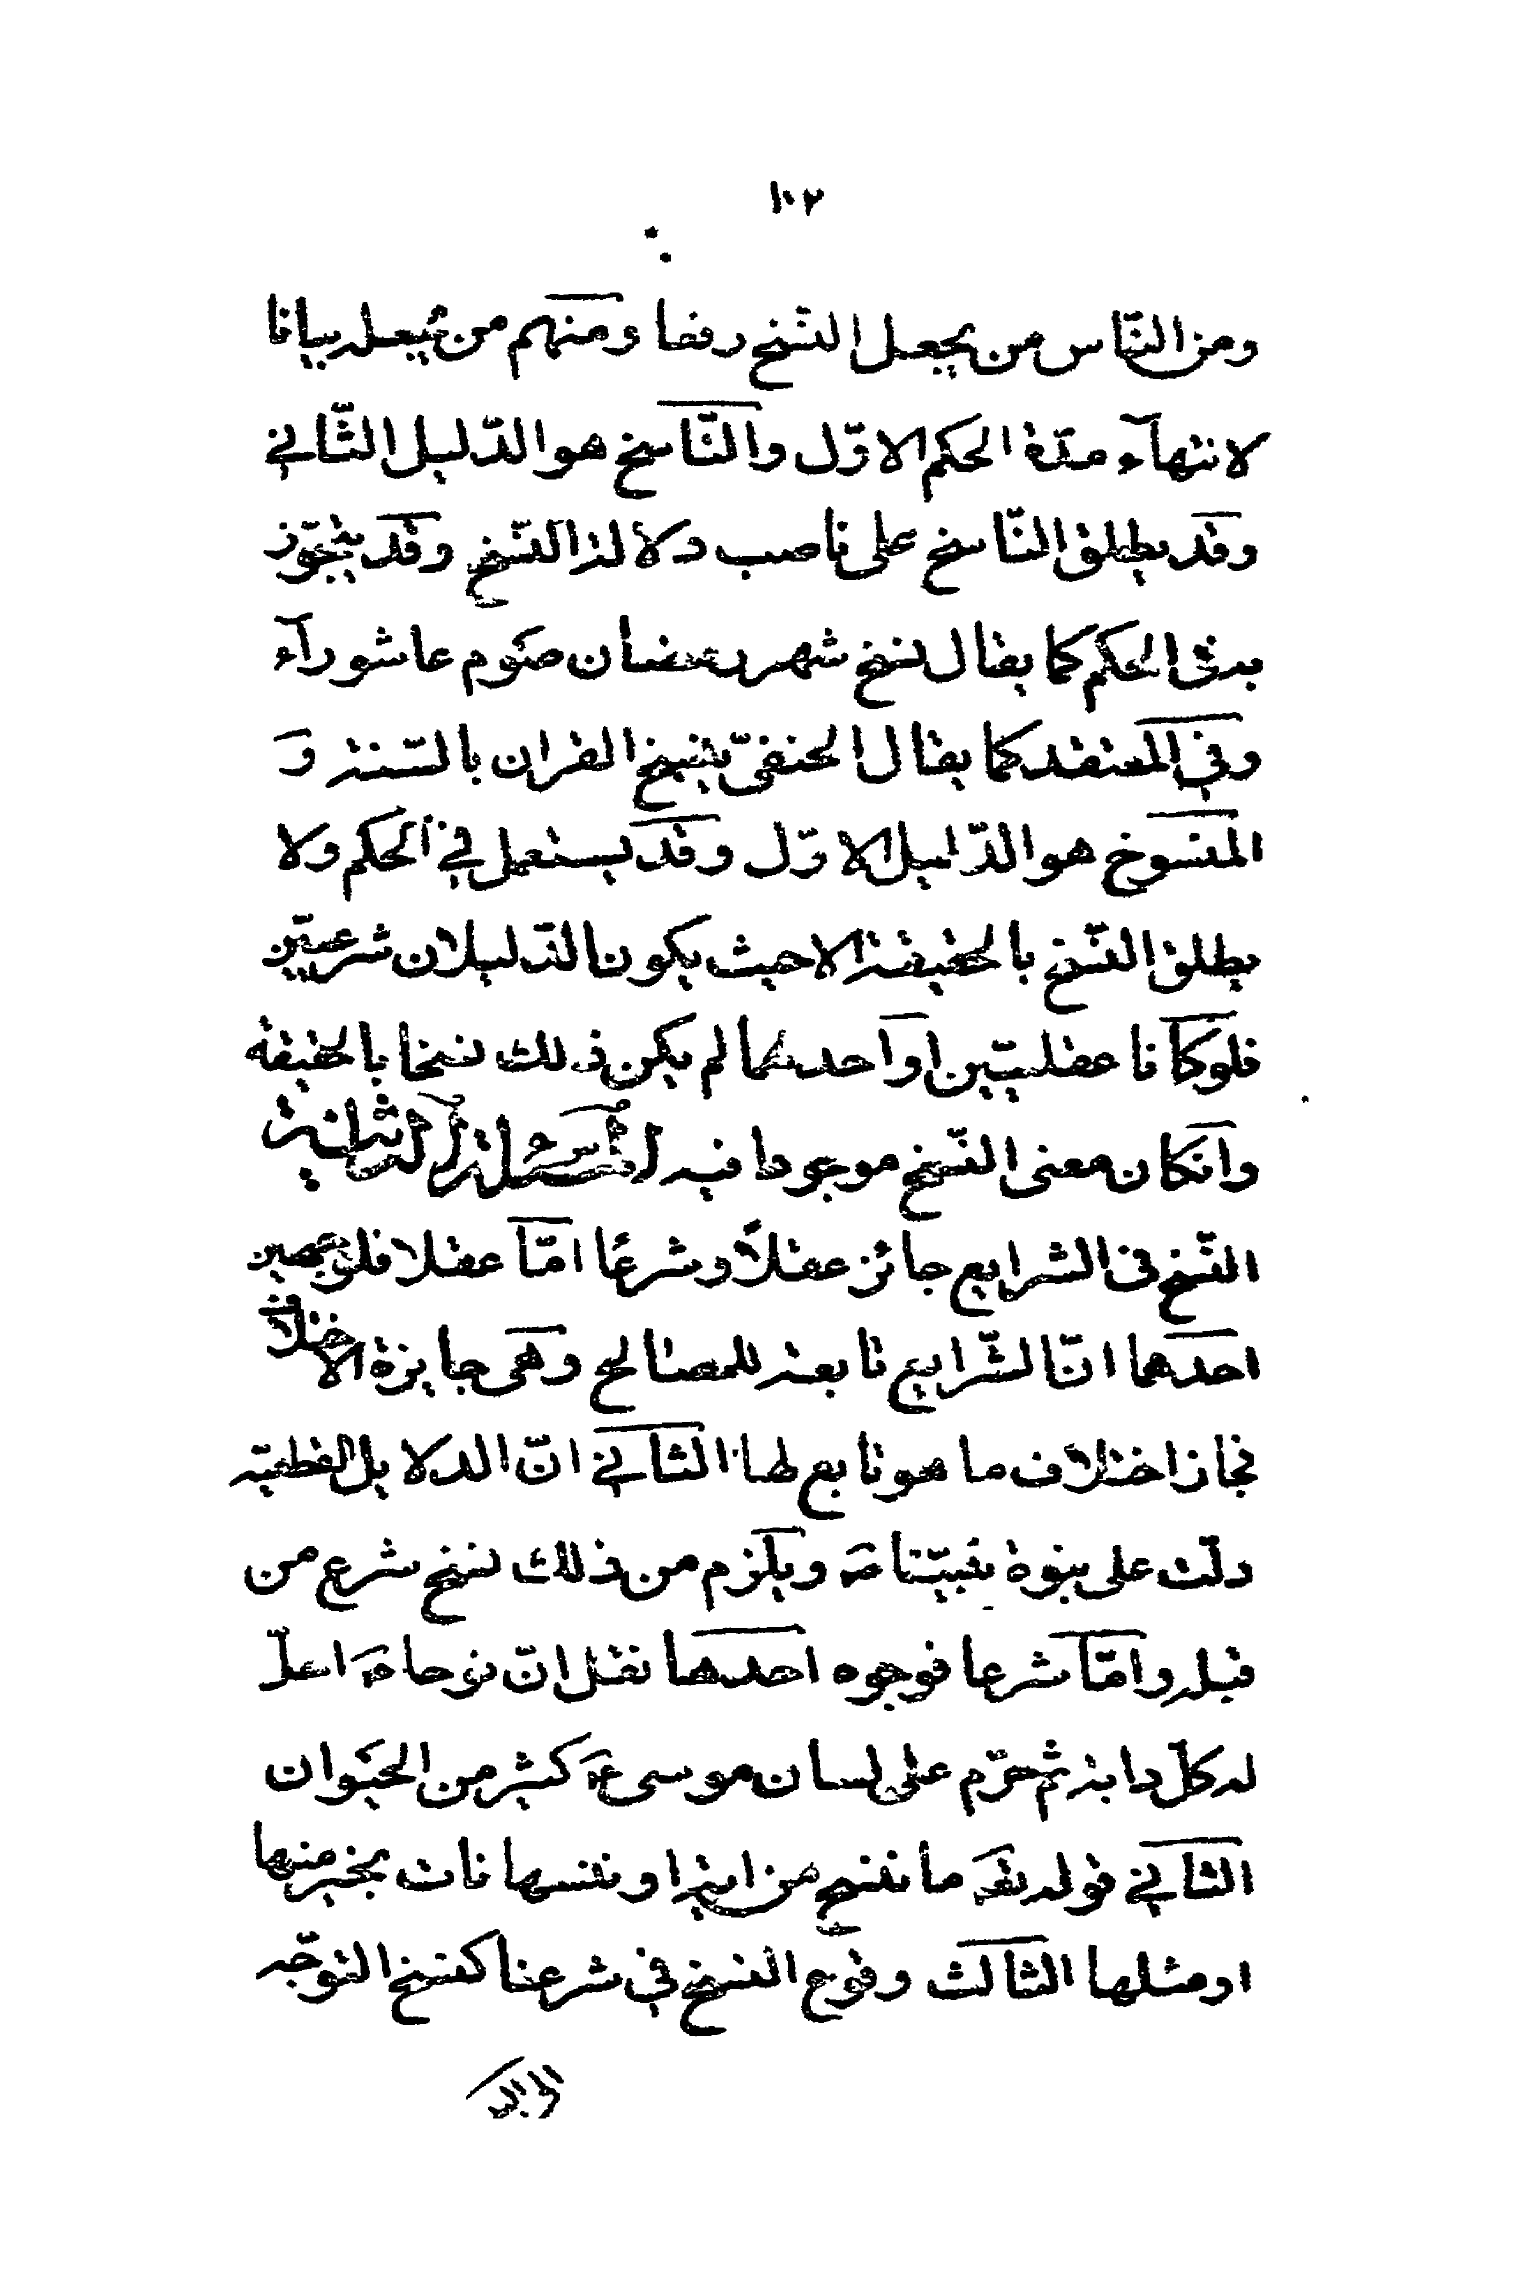 ١٠٢
ومن النّاس من يجعل النّسخ رفعا ومنهم من يجعله بيانا
لانتهآء مدّة الحكم الاوّل والنّاسخ هو الدّليل الثّاني
وقد يطلق النّاسخ على ناصب دلالة النّسخ وقد يتجوّز
به فى الحكم كما يقال نسخ شهر رمضان صوم عاشورآء
وفي المعتقد كما يقال الحنفىّ ينسخ القران بالسّنة و
المنسوخ هو الدّليل الاوّل وقد يستعمل في الحكم ولا
يطلق النّسخ بالحقيقة الا حيث يكون الدّليلان شرعيّين
فلو كانا عقليّين او احدهما لم يكن ذلك نسخا بالحقيقة
وانكان معنى النّسخ موجودا فيه المسئلة الثانية
النّسخ فى الشرايع جائز عقلاً وشرعًا امّا عقلا فلوجهين
احدهما انّ الشّرايع تابعة للمصالح وهى جايزة الاختلاف
فجاز اختلاف ما هو تابع لها الثاني انّ الدلايل القطعيّه
دلّت على نبوة نبيّنا صَ ويلزم من ذلك نسخ شرع من
قبله وامّا شرعا فوجوه احدها نقل انّ نوحا عَ احلّ
له كلّ دابة ثم حرّم على لسان موسى عَ كثير من الحيَوان
الثاني قوله تعَ ما ننسخ من اية او ننسها نات بخير منها
او مثلها الثالث وقوع النسخ في شرعنا كنسخ التوجّه
الى البيت